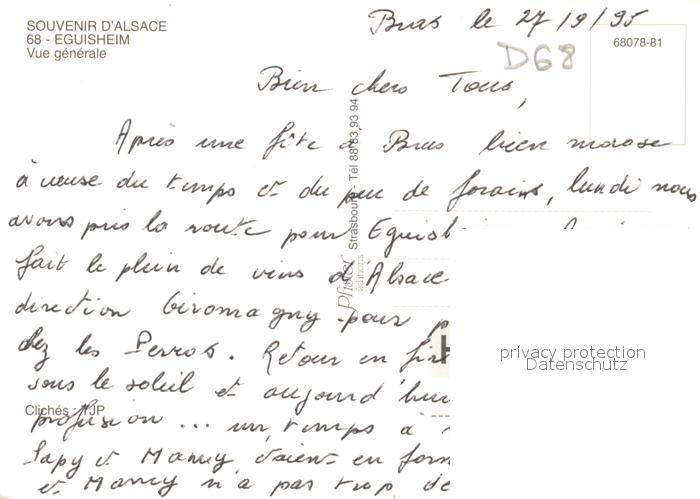 SOUVENIR D'ALSACE
68 - EGUISHEIM
Vue générale
le 27/9/95
D68
68078-81
Bien chers Tous,
Après une fête à Brus bien morose
à cause du temps et du peu de forains, lundi nous
avons pris la route pour Eguish
fait le plein de vins d'Alsace
direction Giromagny pour
chez les Perros. Retour en fin
sous le soleil et aujourd'hui
profusion ... un temps à
Papy et Mamy étaient en form
et Mamy n'a pas trop de
Pfister éditions Strasbourg Tél 88 83 93 94
Clichés : PJP
privacy protection
Datenschutz